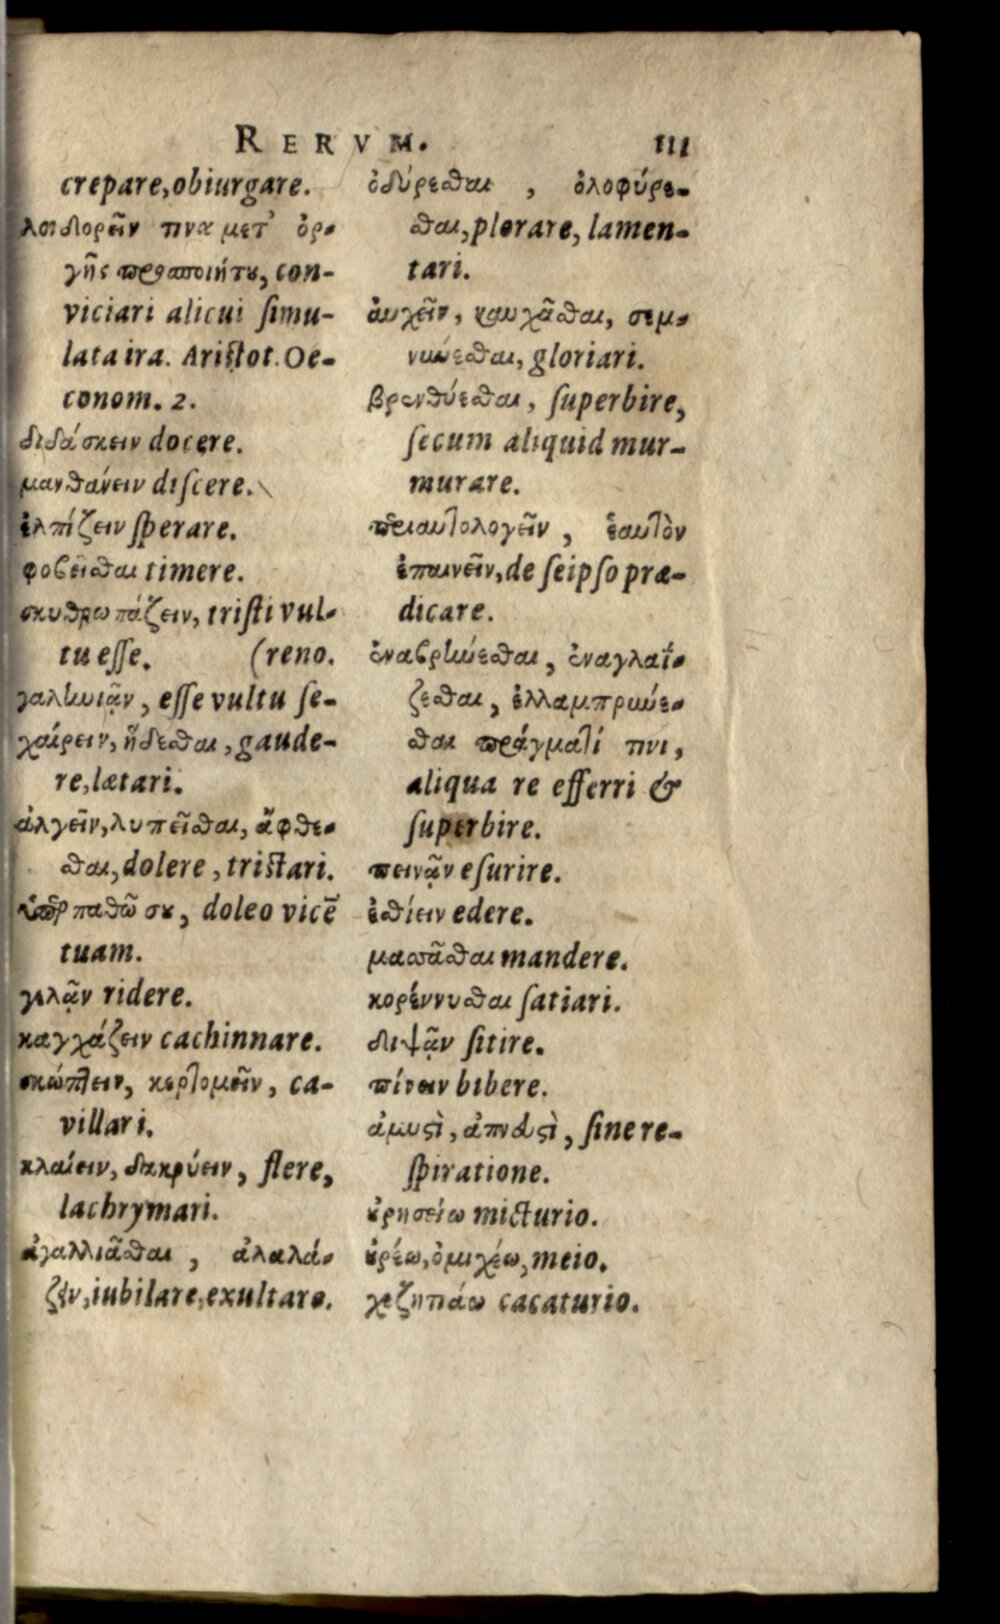 RERVM. 111
crepare, obiurgare.
λοιδορεῖν τινα μετ' ὀρ-
γῆς προσποιήτου, con-
viciari alicui ſimu-
lata ira. Ariſtot. Oe-
conom. 2.
διδάσκειν docere.
μανθάνειν diſcere.
ἐλπίζειν ſperare.
φοβεῖσθαι timere.
σκυθρωπάζειν, triſti vul-
tu eſſe. (reno.
γαληνιᾷν, eſſe vultu ſe-
χαίρειν, ἥδεσθαι, gaude-
re, lætari.
ἀλγεῖν, λυπεῖσθαι, ἄχθε-
σθαι, dolere, triſtari.
ὑπερπαθῶ σου, doleo vicē
tuam.
γελᾷν ridere.
καγχάζειν cachinnare.
σκώπτειν, κερτομεῖν, ca-
villari.
κλαίειν, δακρύειν, flere,
lachrymari.
ἀγαλλιᾶσθαι, ἀλαλά-
ζειν, iubilare, exultare.
ὀδύρεσθαι, ὀλοφύρε-
σθαι, plorare, lamen-
tari.
αὐχεῖν, καυχᾶσθαι, σεμ-
νύνεσθαι, gloriari.
βρενθύεσθαι, ſuperbire,
ſecum aliquid mur-
murare.
περιαυτολογεῖν, ἑαυτὸν
ἐπαινεῖν, de ſeipſo præ-
dicare.
ἐναβρύνεσθαι, ἐναγλαΐ-
ζεσθαι, ἐλλαμπρύνε-
σθαι πράγματί τινι,
aliqua re efferri &
ſuperbire.
πεινᾷν eſurire.
ἐσθίειν edere.
μασᾶσθαι mandere.
κορέννυσθαι ſatiari.
διψᾷν ſitire.
πίνειν bibere.
ἀμυστὶ, ἀπνευστὶ, ſine re-
ſpiratione.
οὐρησείω micturio.
οὐρέω, ὀμιχέω, meio.
χεζητιάω cacaturio.